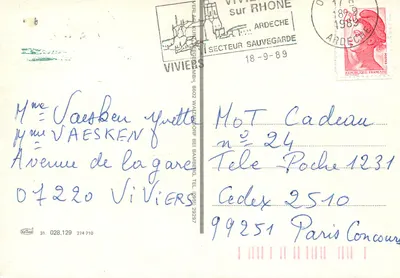 VIVIERS
sur RHONE
ARDECHE
SECTEUR SAUVEGARDE
VIVIERS
18-9-89
17 H
18-9
1989
ARDECHE
Mme Vaesken Yvette
Mme VAESKEN Y
Avenue de la gare
07220 ViViERS
MOT Cadeau
n° 24
Tele Poche 1231
Cedex 2510
99251 Paris Concours
21 028.129 214 110